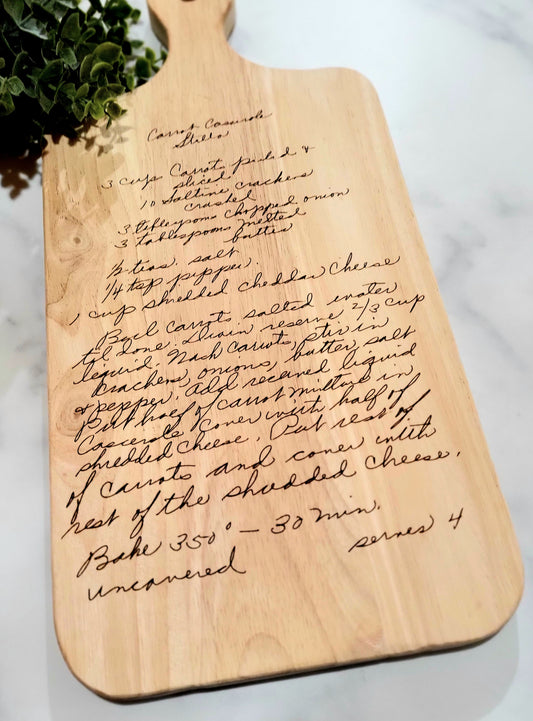 Carrot Casserole
Stella
3 cups Carrots peeled &
sliced
10 Saltine crackers
crushed
3 tablespoons chopped onion
3 tablespoons melted
butter
1/2 teas. salt
1/4 tsp pepper.
1 cup shredded cheddar cheese
Boil carrots salted water
til done. Drain reserve 2/3 cup
liquid. Mash carrots, stir in
crackers, onions, butter, salt
& pepper. Add reserved liquid
Put half of carrot mixture in
Casserole. Cover with half of
shredded cheese. Put rest of
of carrots and cover with
rest of the shredded cheese.
Bake 350° - 30 min.
uncovered
serves 4